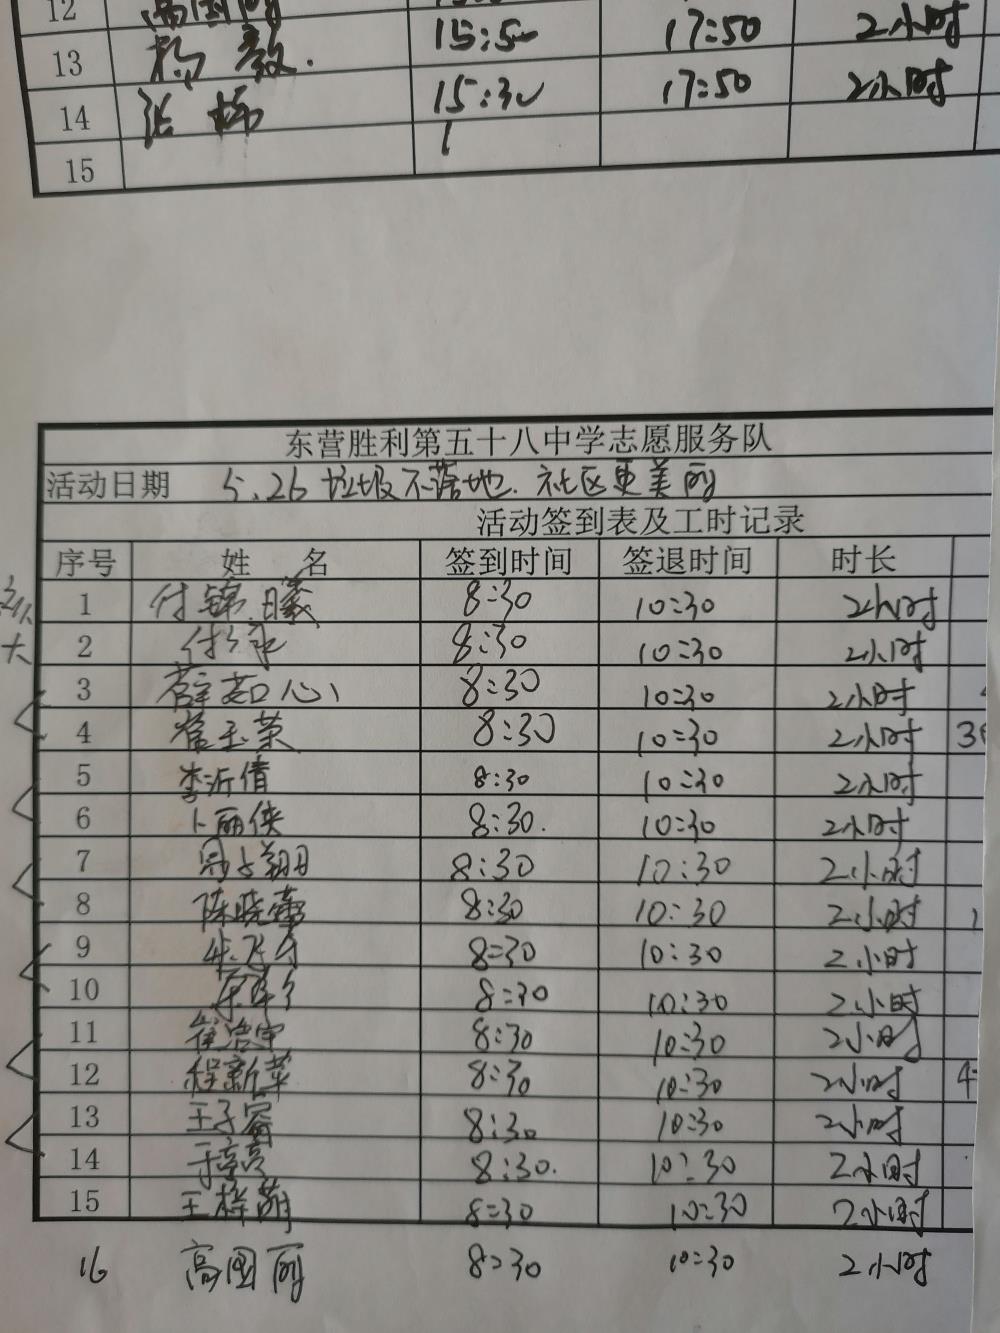 12 高国丽
13 杨毅. 15:50 17:50 2小时
14 张娜 15:30 17:50 2小时
15
东营胜利第五十八中学志愿服务队
活动日期 5.26 垃圾不落地.社区更美丽
活动签到表及工时记录
序号 姓名 签到时间 签退时间 时长
1 付锦曦 8:30 10:30 2小时
2 8:30 10:30 2小时
3 薛茹心 8:30 10:30 2小时
4 崔玉荣 8:30 10:30 2小时
5 李沂倩 8:30 10:30 2小时
6 卜丽侠 8:30. 10:30 2小时
7 8:30 10:30 2小时
8 陈晓蕾 8:30 10:30 2小时
9 8:30 10:30 2小时
10 8:30 10:30 2小时
11 崔浩宇 8:30 10:30 2小时
12 程新苹 8:30 10:30 2小时
13 王子睿 8:30 10:30 2小时
14 8:30. 10:30 2小时
15 王梓萌 8:30 10:30 2小时
16 高国丽 8:30 10:30 2小时